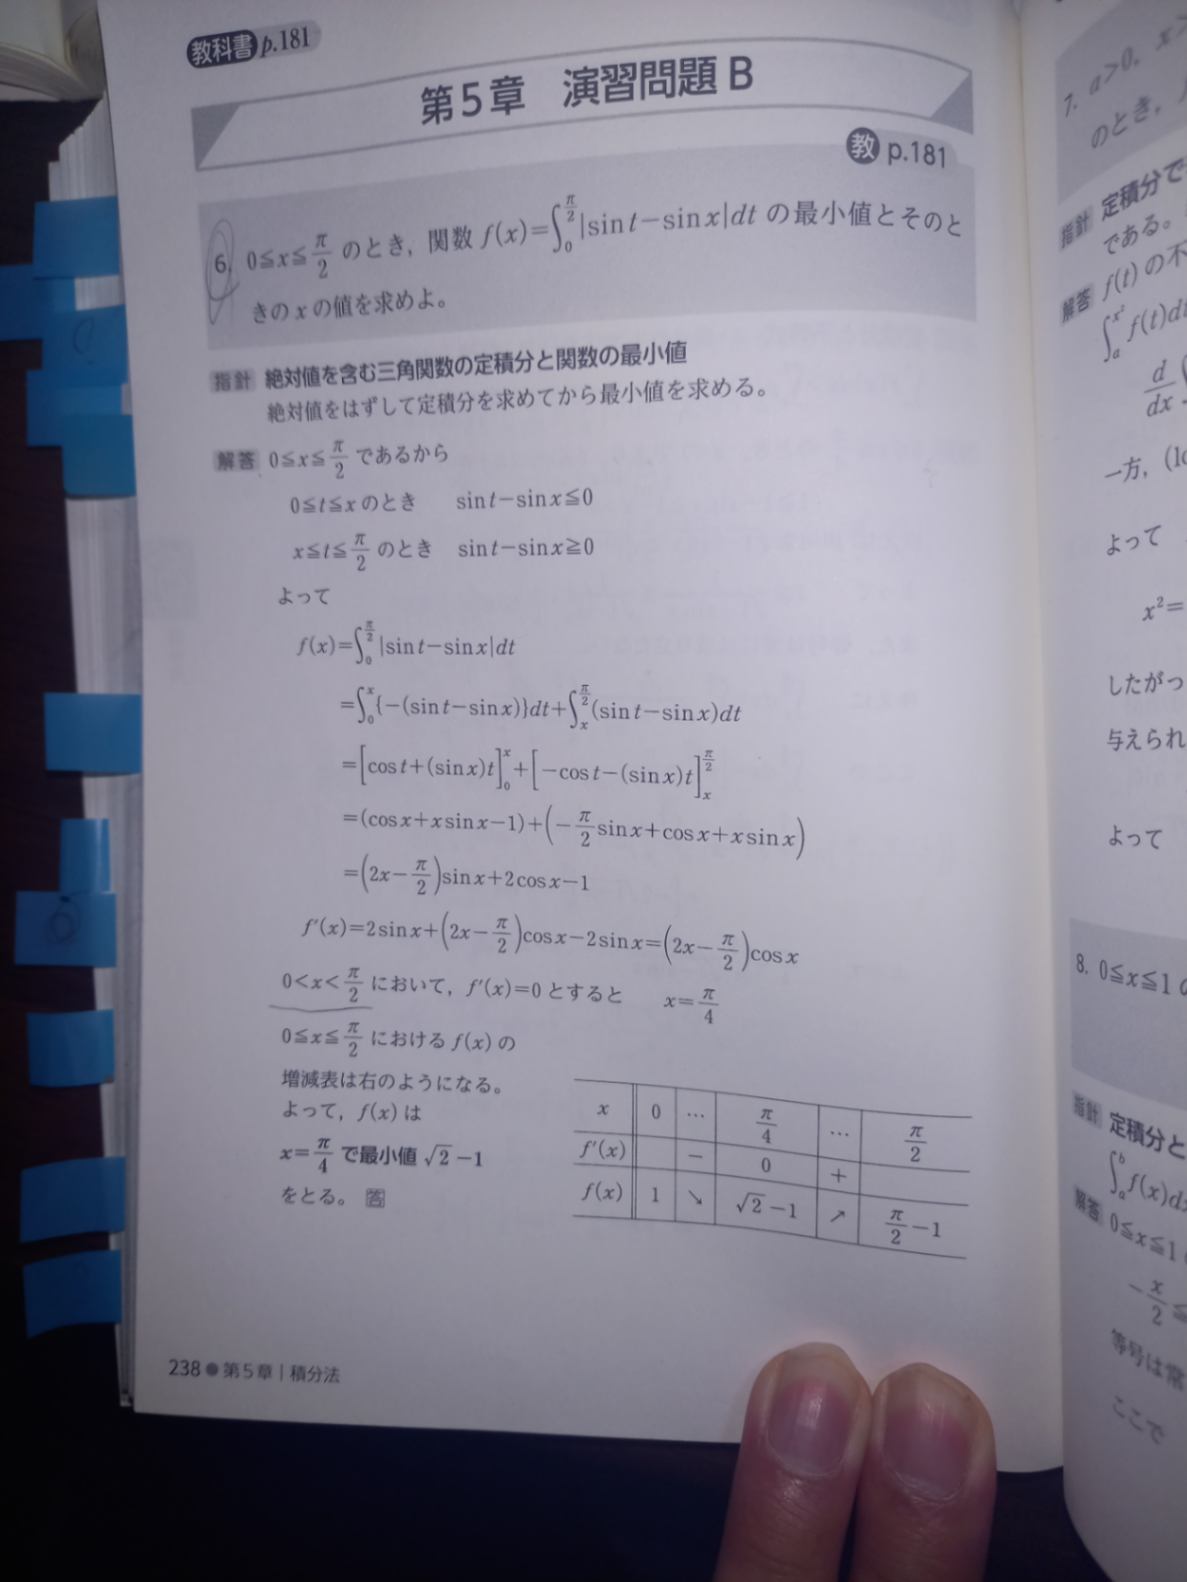 教科書 p.181
第5章 演習問題 B
教 p.181
6. 0≦x≦π/2 のとき, 関数 f(x)=∫₀^{π/2}|sin t−sin x|dt の最小値とそのと
きの x の値を求めよ。
指針 絶対値を含む三角関数の定積分と関数の最小値
絶対値をはずして定積分を求めてから最小値を求める。
解答 0≦x≦π/2 であるから
0≦t≦x のとき sin t−sin x≦0
x≦t≦π/2 のとき sin t−sin x≧0
よって
f(x)=∫₀^{π/2}|sin t−sin x|dt
=∫₀^{x}{−(sin t−sin x)}dt+∫ₓ^{π/2}(sin t−sin x)dt
=[cos t+(sin x)t]₀^{x}+[−cos t−(sin x)t]ₓ^{π/2}
=(cos x+x sin x−1)+(−π/2 sin x+cos x+x sin x)
=(2x−π/2)sin x+2cos x−1
f′(x)=2sin x+(2x−π/2)cos x−2sin x=(2x−π/2)cos x
0<x<π/2 において, f′(x)=0 とすると x=π/4
0≦x≦π/2 における f(x) の
増減表は右のようになる。
よって, f(x) は
x=π/4 で最小値 √2−1
をとる。 答
x 0 … π/4 … π/2
f′(x) − 0 +
f(x) 1 ↘ √2−1 ↗ π/2−1
238 ● 第5章 | 積分法
7. a>0, x>
のとき,
指針 定積分で
である。
解答 f(t) の不
∫ₐ^{x²} f(t)dt
d/dx
一方, (lo
よって
x²=
したがっ
与えられ
よって
8. 0≦x≦1 の
指針 定積分と
∫ₐ^{b} f(x)dx
解答 0≦x≦1
−x/2≦
等号は常
ここで